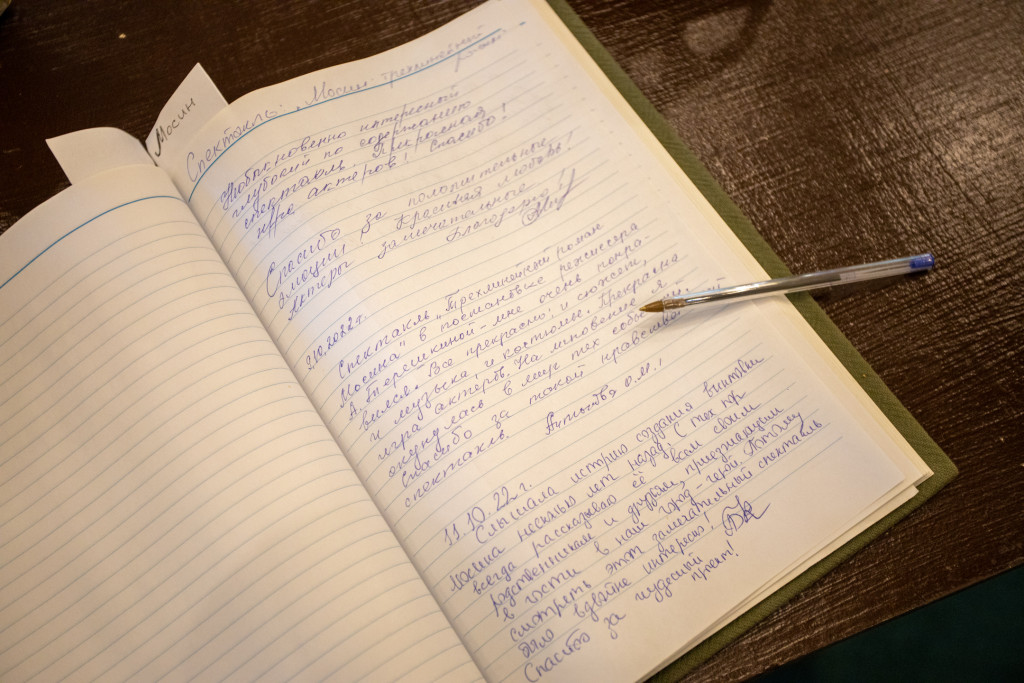 Мосин
Спектакль: „Мосин: трехлинейный
роман.
Необыкновенно интересный
глубокий по содержанию
спектакль. Прекрасная
игра актеров! Спасибо!
Спасибо за положительные
эмоции! Красивая любовь!
Актеры замечательные!
Благодарю!
9.10.2022г.
Спектакль „Трехлинейный роман
Мосина" в постановке режиссера
А. Терешкиной - мне очень понра-
вился. Все прекрасно! и сюжет,
и музыка, и костюмы. Прекрасна
игра актеров. На мгновение я
окунулась в мир тех событий.
Спасибо за такой нравственный
спектакль. О.М.!
11.10.22г.
Слышала историю создания винтовки
Мосина несколько лет назад. С тех пор
всегда рассказываю её всем своим
родственникам и друзьям, приезжающим
в гости в наш город-герой. Потому
смотреть этот замечательный спектакль
было вдвойне интересно!
Спасибо за чудесный
проект!